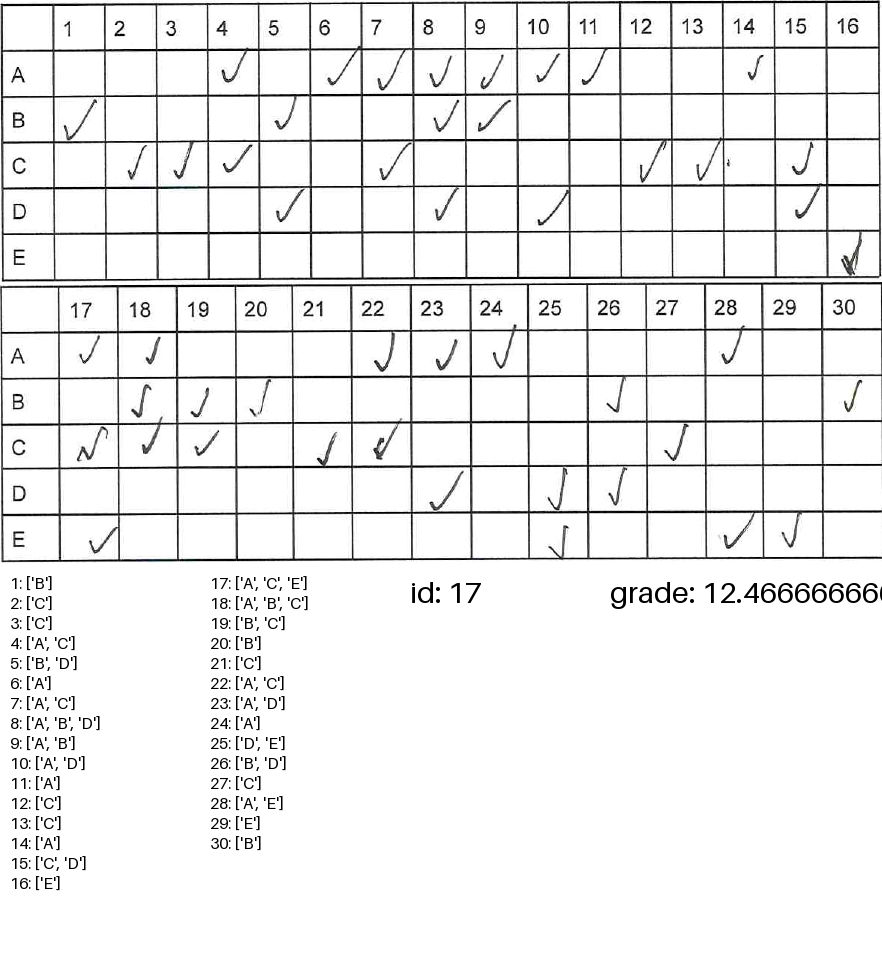 1 2 3 4 5 6 7 8 9 10 11 12 13 14 15 16
A ✓ ✓ ✓ ✓ ✓ ✓ ✓ ✓
B ✓ ✓ ✓ ✓
C ✓ ✓ ✓ ✓ ✓ ✓ ✓
D ✓ ✓ ✓ ✓
E ✓
17 18 19 20 21 22 23 24 25 26 27 28 29 30
A ✓ ✓ ✓ ✓ ✓ ✓
B ✓ ✓ ✓ ✓ ✓
C ✓ ✓ ✓ ✓ ✓ ✓
D ✓ ✓ ✓
E ✓ ✓ ✓ ✓
1: ['B']
2: ['C']
3: ['C']
4: ['A', 'C']
5: ['B', 'D']
6: ['A']
7: ['A', 'C']
8: ['A', 'B', 'D']
9: ['A', 'B']
10: ['A', 'D']
11: ['A']
12: ['C']
13: ['C']
14: ['A']
15: ['C', 'D']
16: ['E']
17: ['A', 'C', 'E']
18: ['A', 'B', 'C']
19: ['B', 'C']
20: ['B']
21: ['C']
22: ['A', 'C']
23: ['A', 'D']
24: ['A']
25: ['D', 'E']
26: ['B', 'D']
27: ['C']
28: ['A', 'E']
29: ['E']
30: ['B']
id: 17
grade: 12.466666666